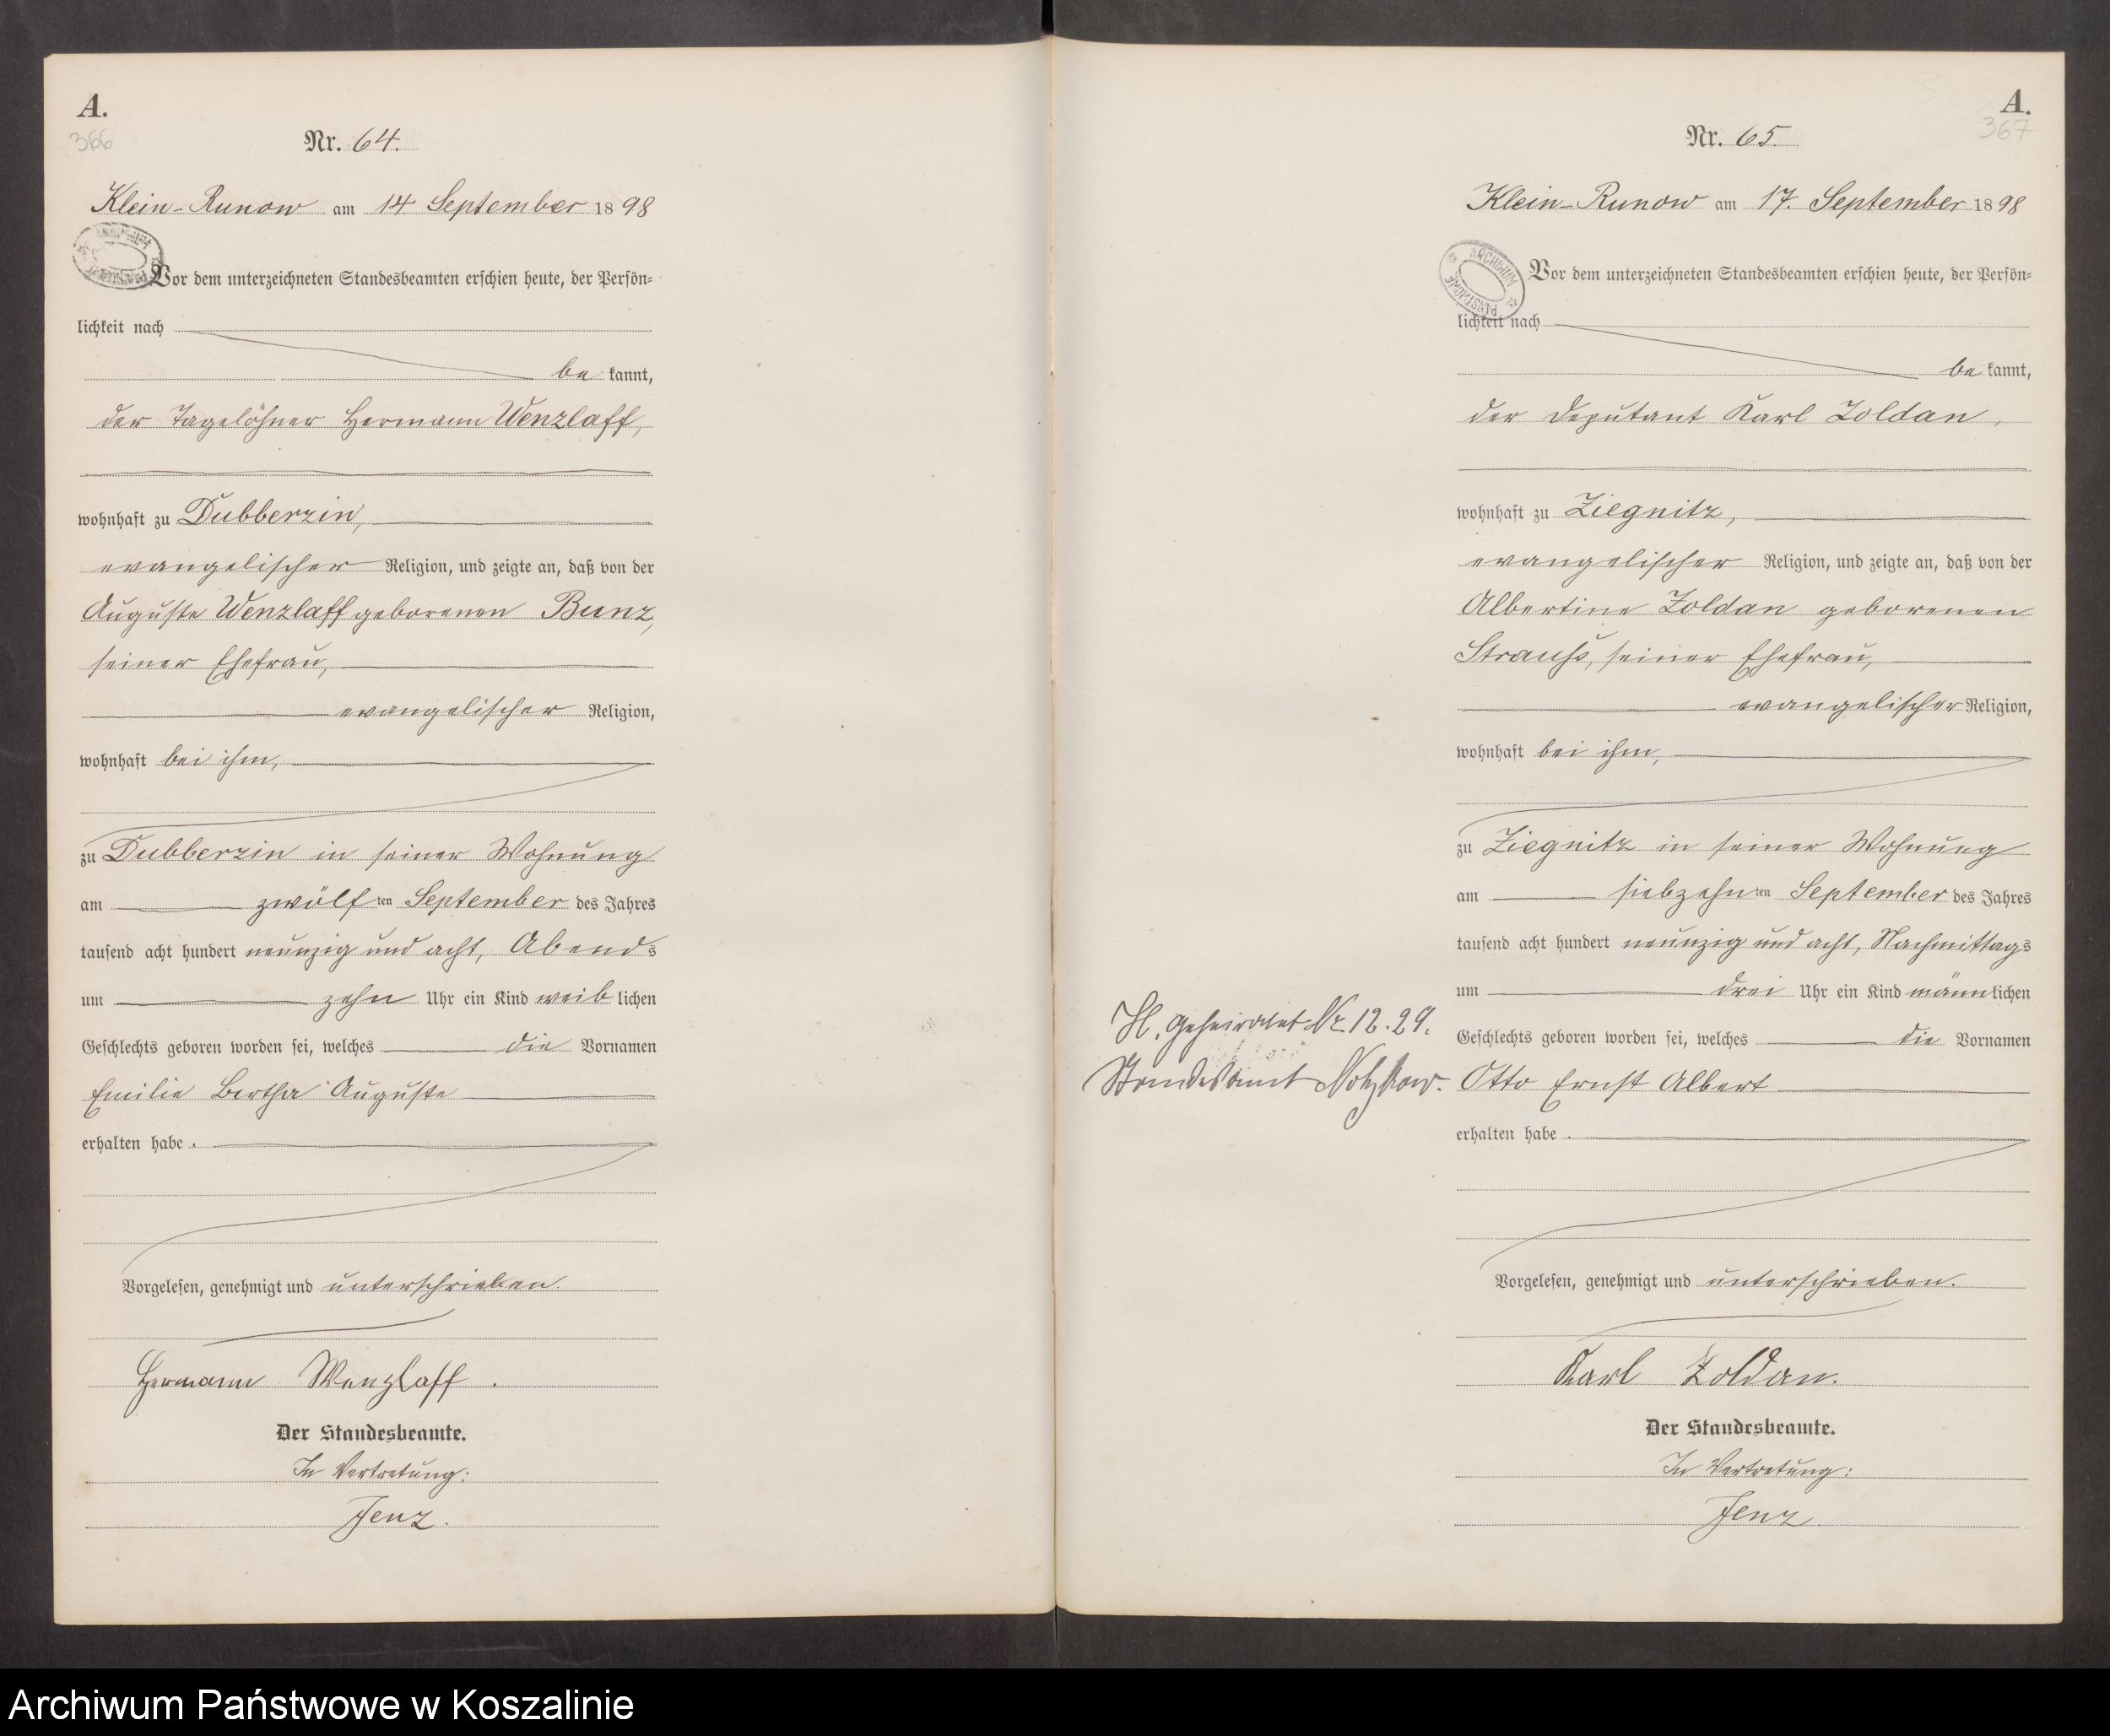 A.
366
Nr. 64.
Klein-Runow am 14 September 1898
Vor dem unterzeichneten Standesbeamten erschien heute, der Persön=
lichkeit nach
be kannt,
der Tagelöhner Hermann Wenzlaff,
wohnhaft zu Dubberzin,
evangelischer Religion, und zeigte an, daß von der
Auguste Wenzlaff geborenen Bunz,
seiner Ehefrau,
evangelischer Religion,
wohnhaft bei ihm,
zu Dubberzin in seiner Wohnung
am zwölf ten September des Jahres
tausend acht hundert neunzig und acht, Abends
um zehn Uhr ein Kind weib lichen
Geschlechts geboren worden sei, welches die Vornamen
Emilie Bertha Auguste
erhalten habe.
Vorgelesen, genehmigt und unterschrieben.
Hermann Wenzlaff.
Der Standesbeamte.
In Vertretung:
Jenz.
A.
367
Nr. 65.
Klein-Runow am 17. September 1898
ARCHIWUM PAŃSTWOWE
Vor dem unterzeichneten Standesbeamten erschien heute, der Persön=
lichkeit nach
be kannt,
der Deputant Karl Zoldan,
wohnhaft zu Ziegnitz,
evangelischer Religion, und zeigte an, daß von der
Albertine Zoldan geborenen
Strauß, seiner Ehefrau,
evangelischer Religion,
wohnhaft bei ihm,
zu Ziegnitz in seiner Wohnung
am siebzehn ten September des Jahres
tausend acht hundert neunzig und acht, Nachmittags
um drei Uhr ein Kind männlichen
Geschlechts geboren worden sei, welches die Vornamen
Otto Ernst Albert
erhalten habe.
geheiratet Nr. 12.29.
Standesamt
Vorgelesen, genehmigt und unterschrieben.
Karl Zoldan.
Der Standesbeamte.
In Vertretung:
Jenz.
Archiwum Państwowe w Koszalinie